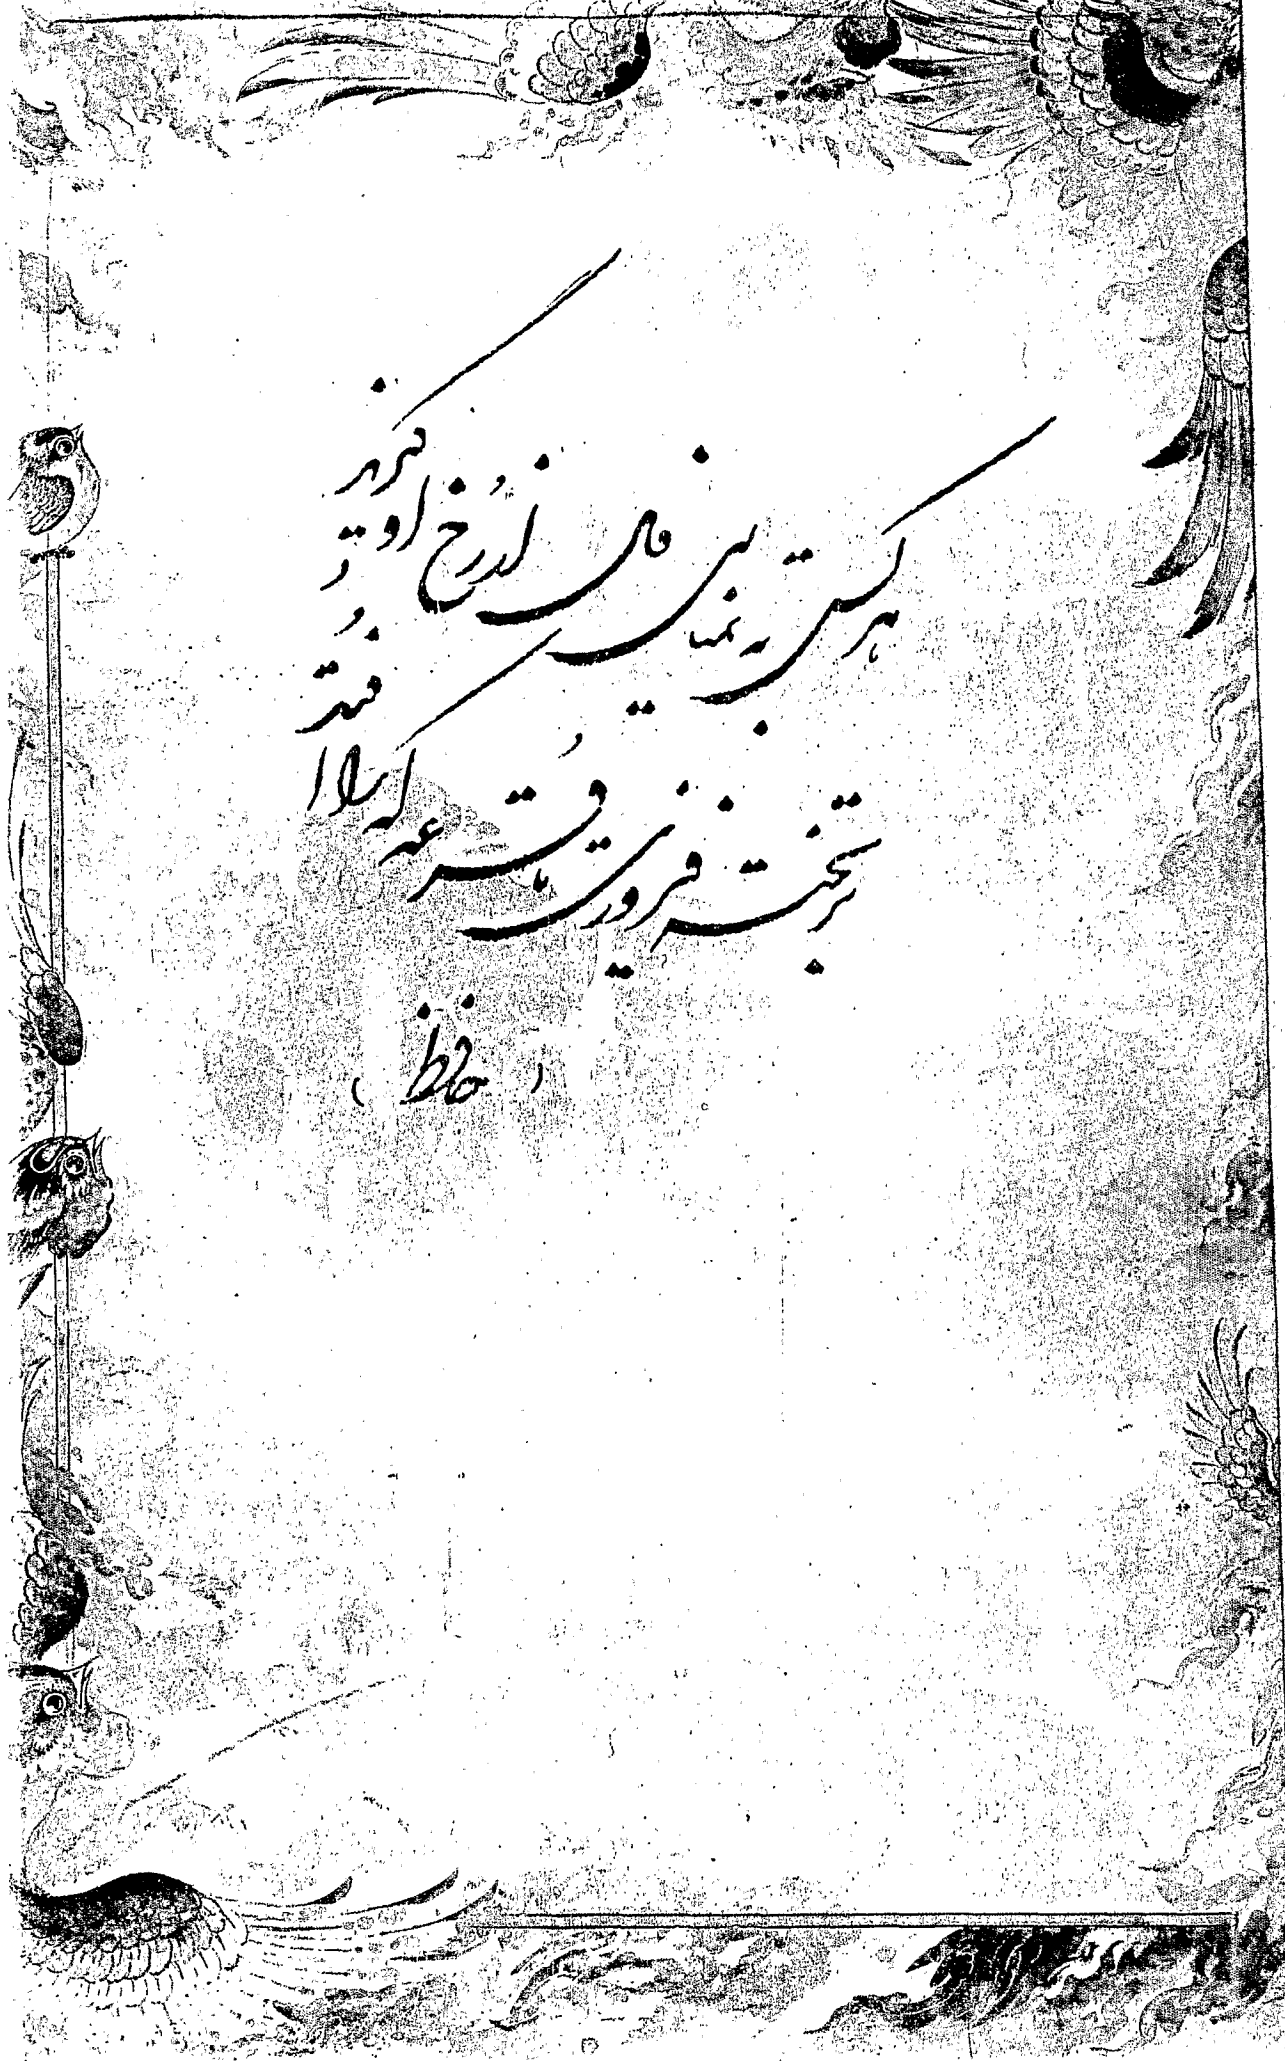 هر کس به تمنایی فال از رُخ او گیرند
بر تخته فیروزی تا قُرعه که را اُفتد
(حافظ)